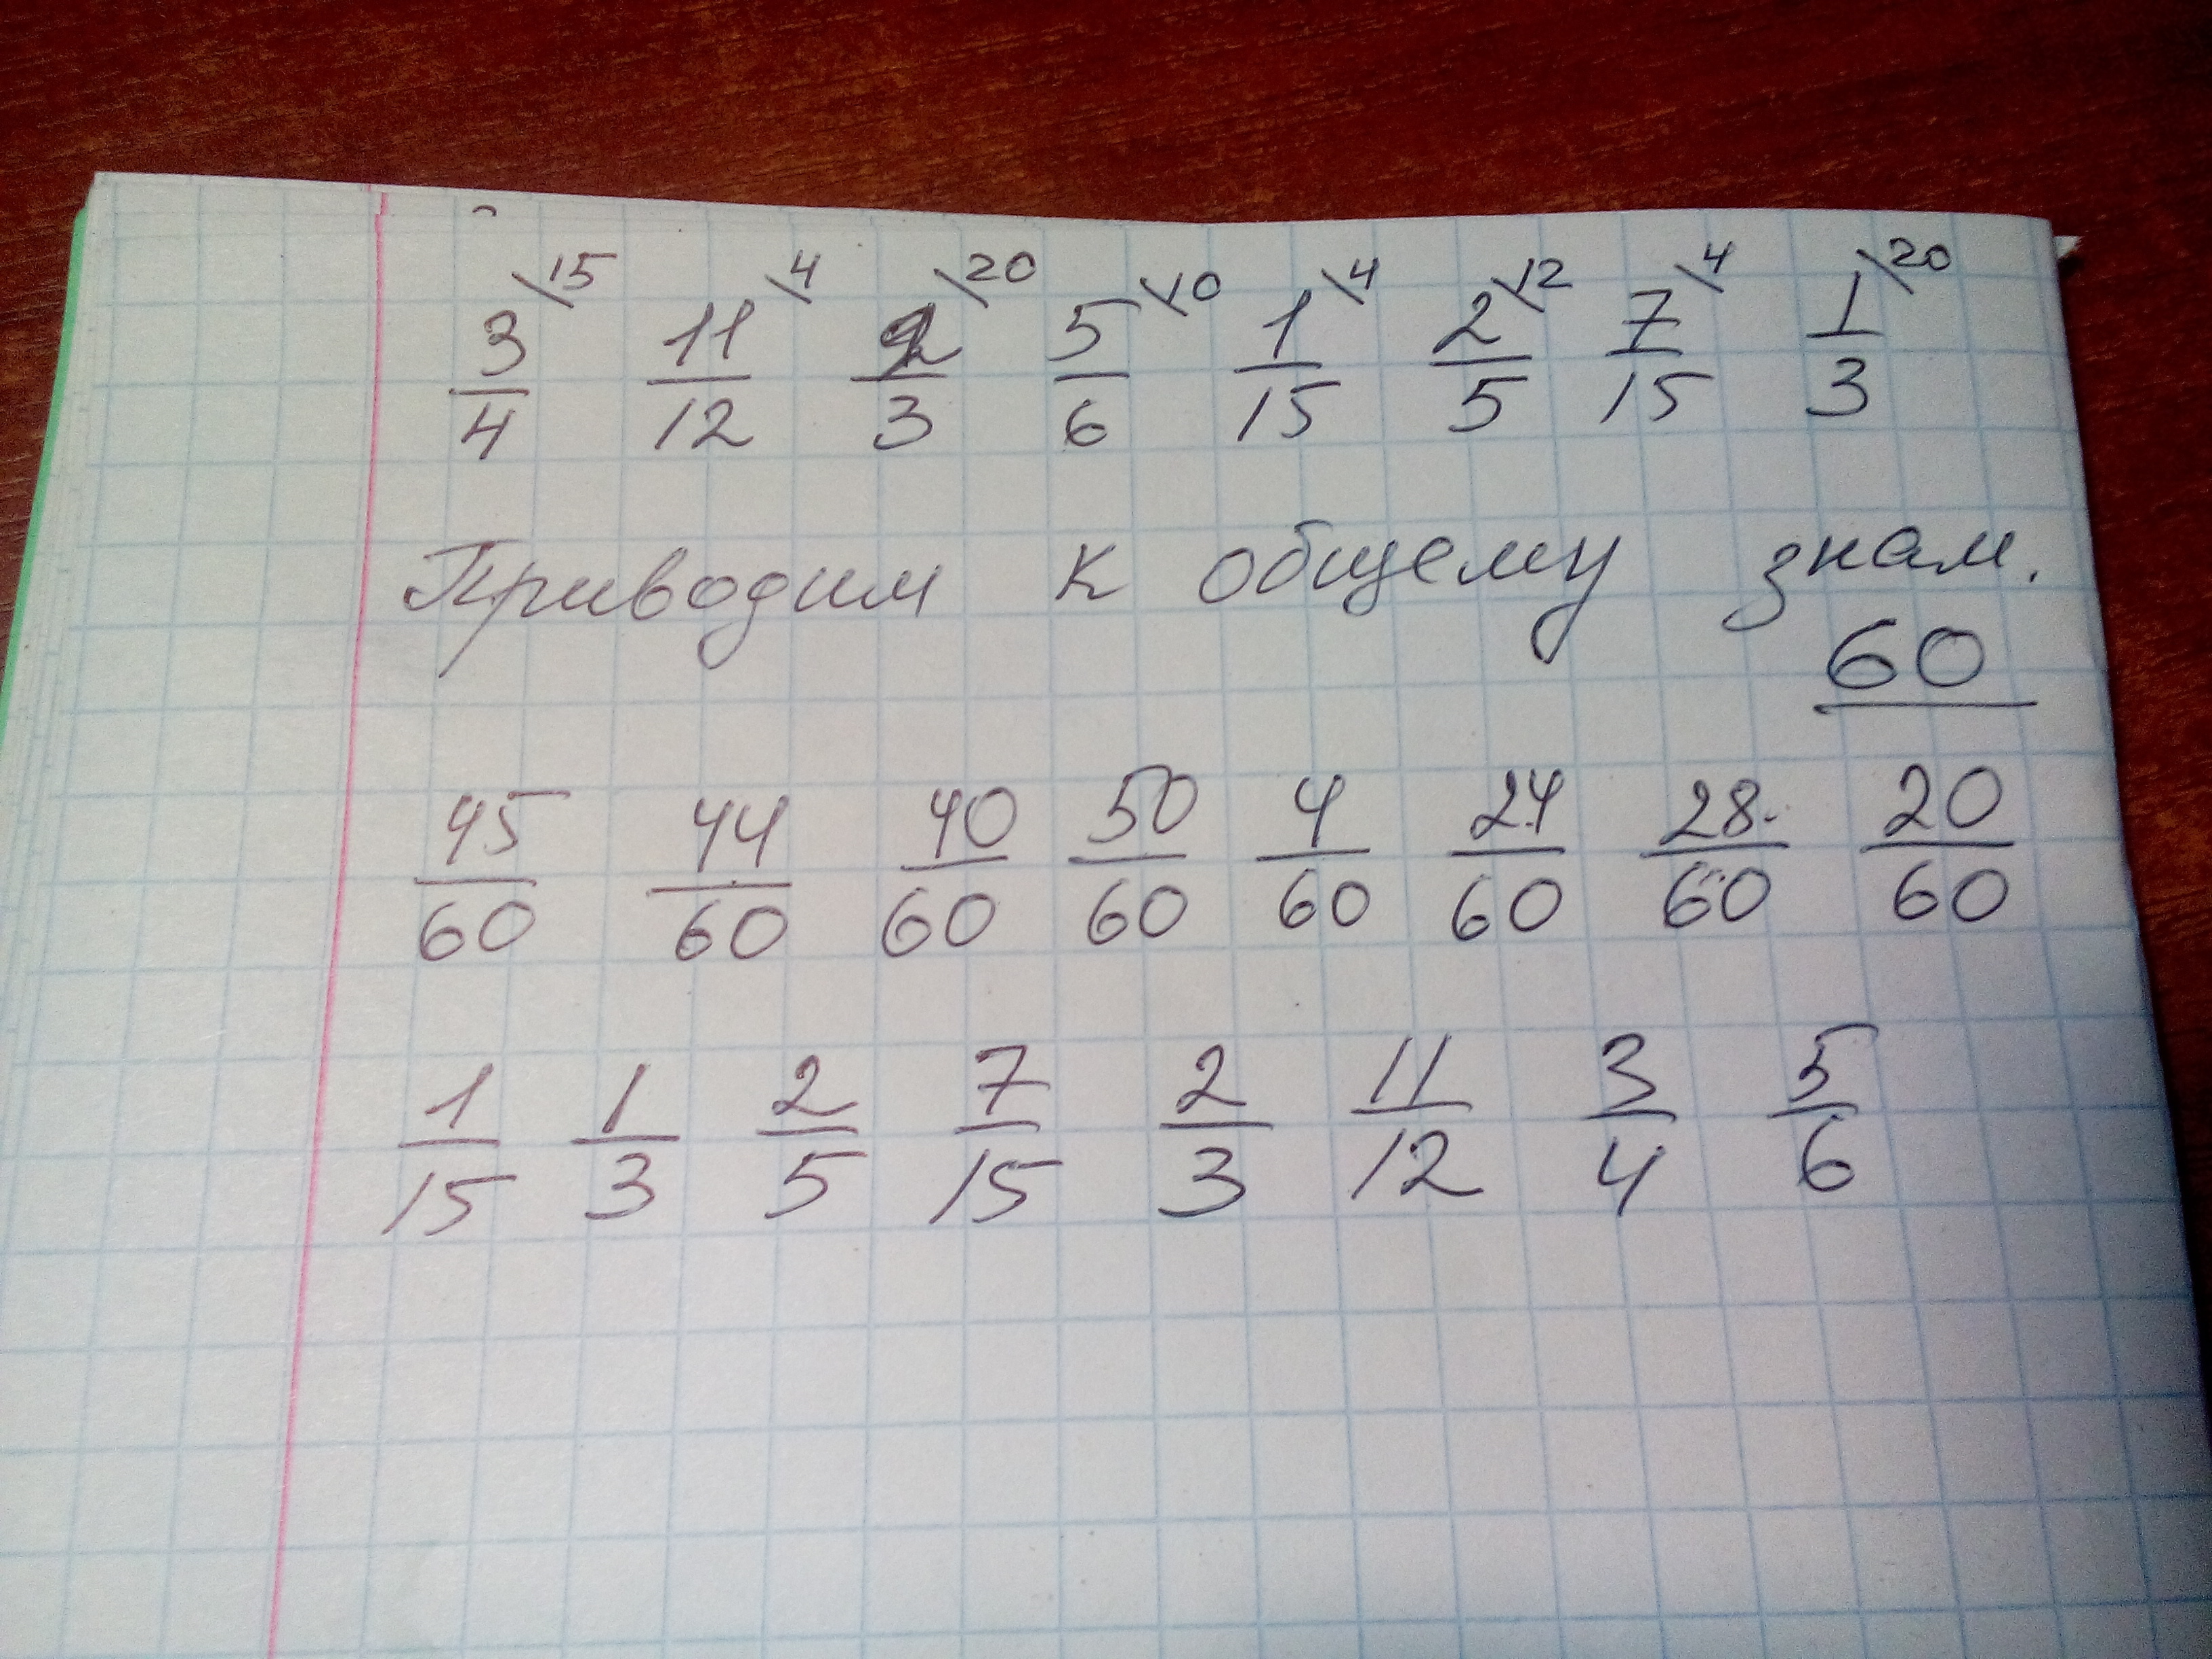 3/4 \15 11/12 \4 2/3 \20 5/6 \10 1/15 \4 2/5 \12 7/15 \4 1/3 \20
Приводим к общему знам.
60
45/60 44/60 40/60 50/60 4/60 24/60 28/60 20/60
1/15 1/3 2/5 7/15 2/3 11/12 3/4 5/6